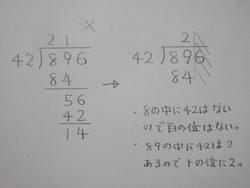 21 ×
42)896
84
56
42
14
→
2
42)896
84
・8の中に42はない
ので百の位はない。
・89の中に42は2
あるので十の位に2。